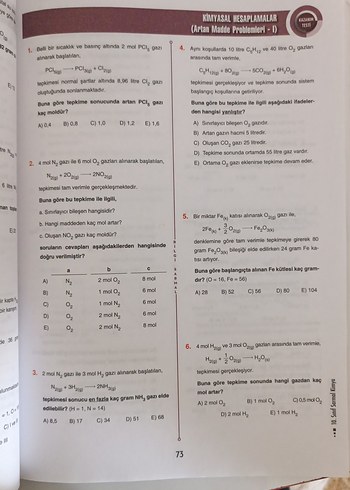 KİMYASAL HESAPLAMALAR
(Artan Madde Problemleri - I)
KAZANIM
TESTİ
1. Belli bir sıcaklık ve basınç altında 2 mol PCl5 gazı
alınarak başlatılan,
PCl5(g) → PCl3(g) + Cl2(g)
tepkimesi normal şartlar altında 8,96 litre Cl2 gazı
oluştuğunda sonlanmaktadır.
Buna göre tepkime sonucunda artan PCl5 gazı
kaç moldür?
A) 0,4 B) 0,8 C) 1,0 D) 1,2 E) 1,6
2. 4 mol N2 gazı ile 6 mol O2 gazları alınarak başlatılan,
N2(g) + 2O2(g) → 2NO2(g)
tepkimesi tam verimle gerçekleşmektedir.
Buna göre bu tepkime ile ilgili,
a. Sınırlayıcı bileşen hangisidir?
b. Hangi maddeden kaç mol artar?
c. Oluşan NO2 gazı kaç moldür?
soruların cevapları aşağıdakilerden hangisinde
doğru verilmiştir?
a b c
A) N2 2 mol O2 8 mol
B) N2 1 mol O2 6 mol
C) O2 1 mol N2 6 mol
D) O2 2 mol N2 6 mol
E) O2 2 mol N2 8 mol
3. 2 mol N2 gazı ile 3 mol H2 gazı alınarak başlatılan,
N2(g) + 3H2(g) → 2NH3(g)
tepkimesi sonucu en fazla kaç gram NH3 gazı elde
edilebilir? (H = 1, N = 14)
A) 8,5 B) 17 C) 34 D) 51 E) 68
4. Aynı koşullarda 10 litre C5H12 ve 40 litre O2 gazları
arasında tam verimle,
C5H12(g) + 8O2(g) → 5CO2(g) + 6H2O(g)
tepkimesi gerçekleşiyor ve tepkime sonunda sistem
başlangıç koşullarına getiriliyor.
Buna göre bu tepkime ile ilgili aşağıdaki ifadeler-
den hangisi yanlıştır?
A) Sınırlayıcı bileşen O2 gazıdır.
B) Artan gazın hacmi 5 litredir.
C) Oluşan CO2 gazı 25 litredir.
D) Tepkime sonunda ortamda 55 litre gaz vardır.
E) Ortama O2 gazı eklenirse tepkime devam eder.
5. Bir miktar Fe(k) katısı alınarak O2(g) gazı ile,
2Fe(k) + 3/2 O2(g) → Fe2O3(k)
denklemine göre tam verimle tepkimeye girerek 80
gram Fe2O3(k) bileşiği elde edilirken 24 gram Fe ka-
tısı artıyor.
Buna göre başlangıçta alınan Fe kütlesi kaç gram-
dır? (O = 16, Fe = 56)
A) 28 B) 52 C) 56 D) 80 E) 104
6. 4 mol H2(g) ve 3 mol O2(g) gazları arasında tam verimle,
H2(g) + 1/2 O2(g) → H2O(s)
tepkimesi gerçekleşiyor.
Buna göre tepkime sonunda hangi gazdan kaç
mol artar?
A) 2 mol O2 B) 1 mol O2 C) 0,5 mol O2
D) 2 mol H2 E) 1 mol H2
73
10. Sınıf Sarmal Kimya